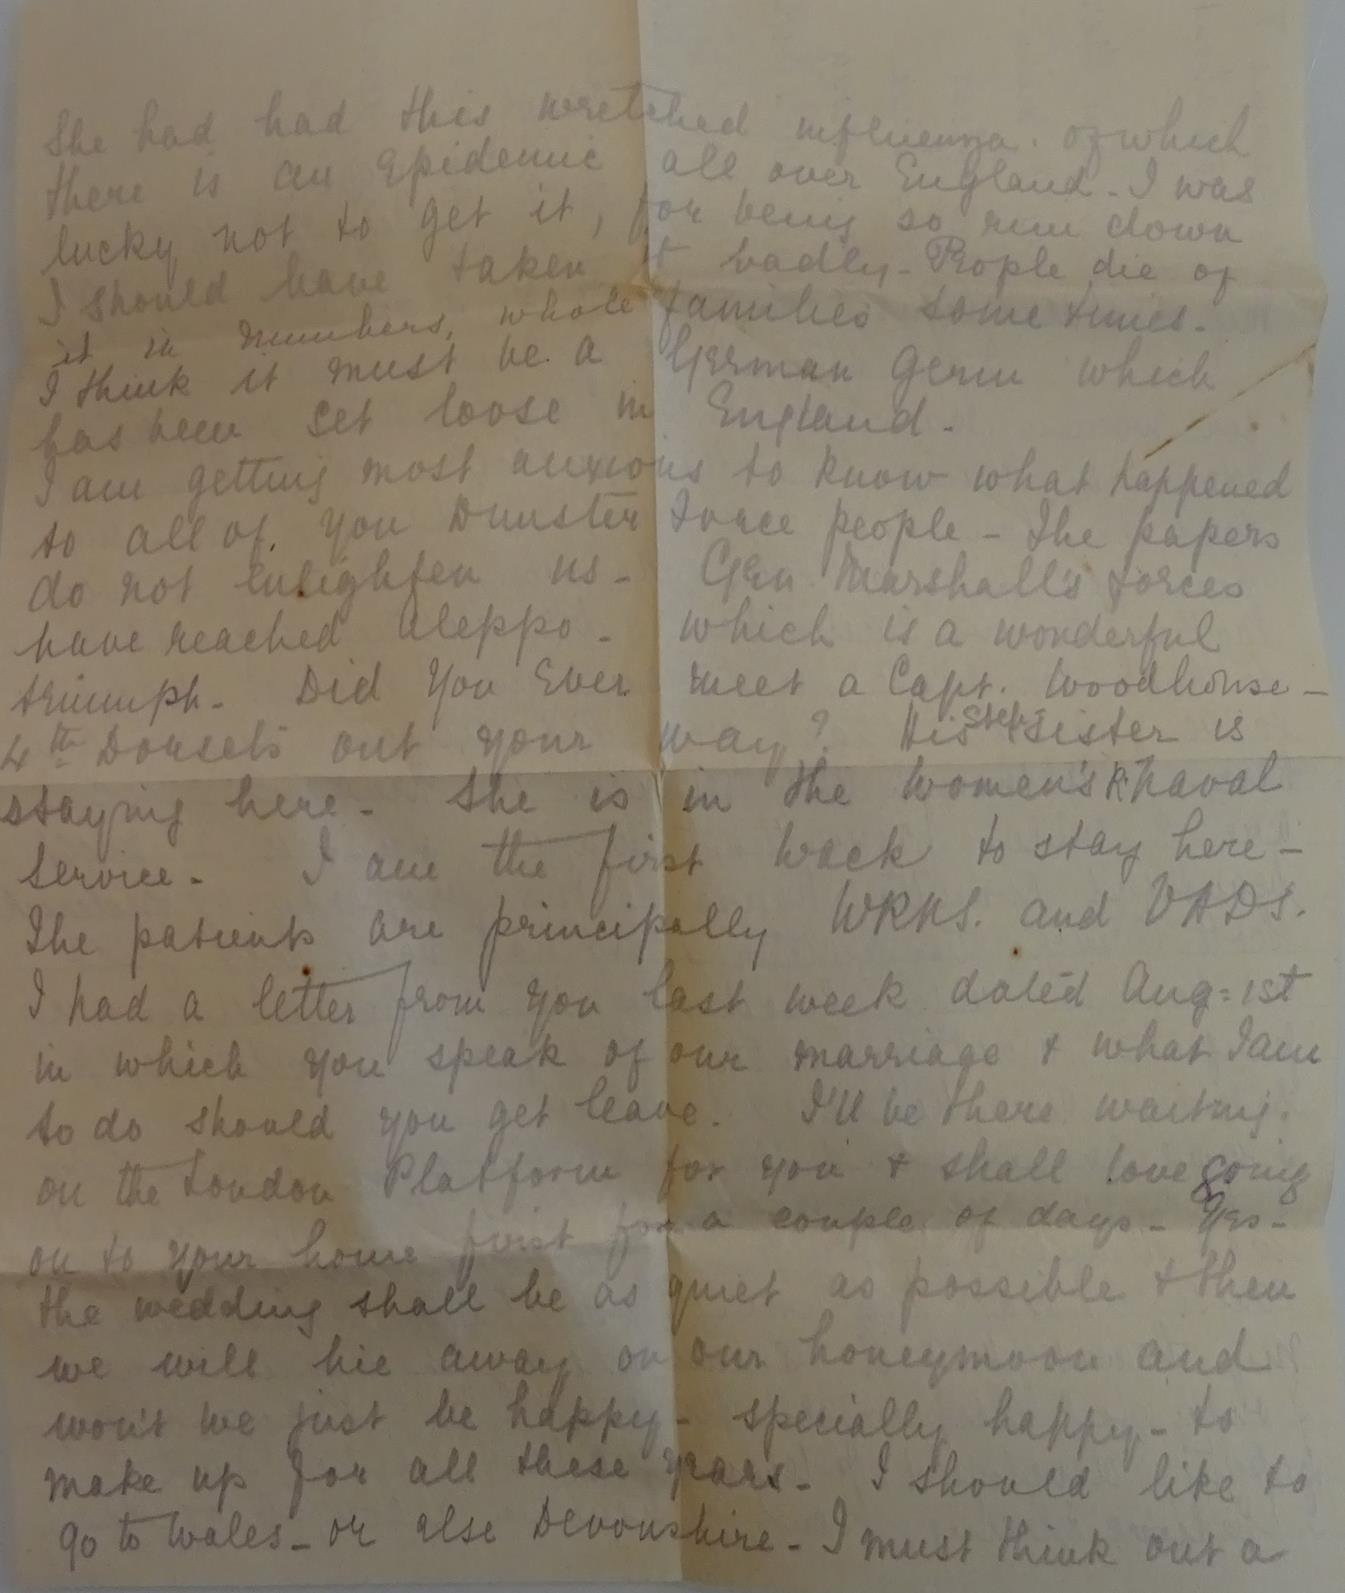 She had had this wretched influenza. of which
there is an Epidemic all over England - I was
lucky not to get it, for being so run down
I should have taken it badly - People die of
it in numbers, whole families sometimes.
I think it must be a German Germ which
has been set loose in England -
I am getting most anxious to know what happened
to all of you Dunster Force people - The papers
do not enlighten us - Gen. Marshall's forces
have reached Aleppo - which is a wonderful
triumph - Did you Ever meet a Capt. Woodhouse -
4th Dorsets out your way? His step-sister is
staying here - She is in the Women's R. Naval
Service - I am the first Waack to stay here -
The patients are principally WRNS. and VADS.
I had a letter from you last week dated Aug = 1st
in which you speak of our marriage & what I am
to do should you get leave. I'll be there waiting.
on the London Platform for you & shall love going
on to your home first for a couple of days - Yes -
the wedding shall be as quiet as possible & then
we will hie away on our honeymoon and
won't we just be happy - specially happy - to
make up for all these years - I should like to
go to Wales - or else Devonshire - I must think out a